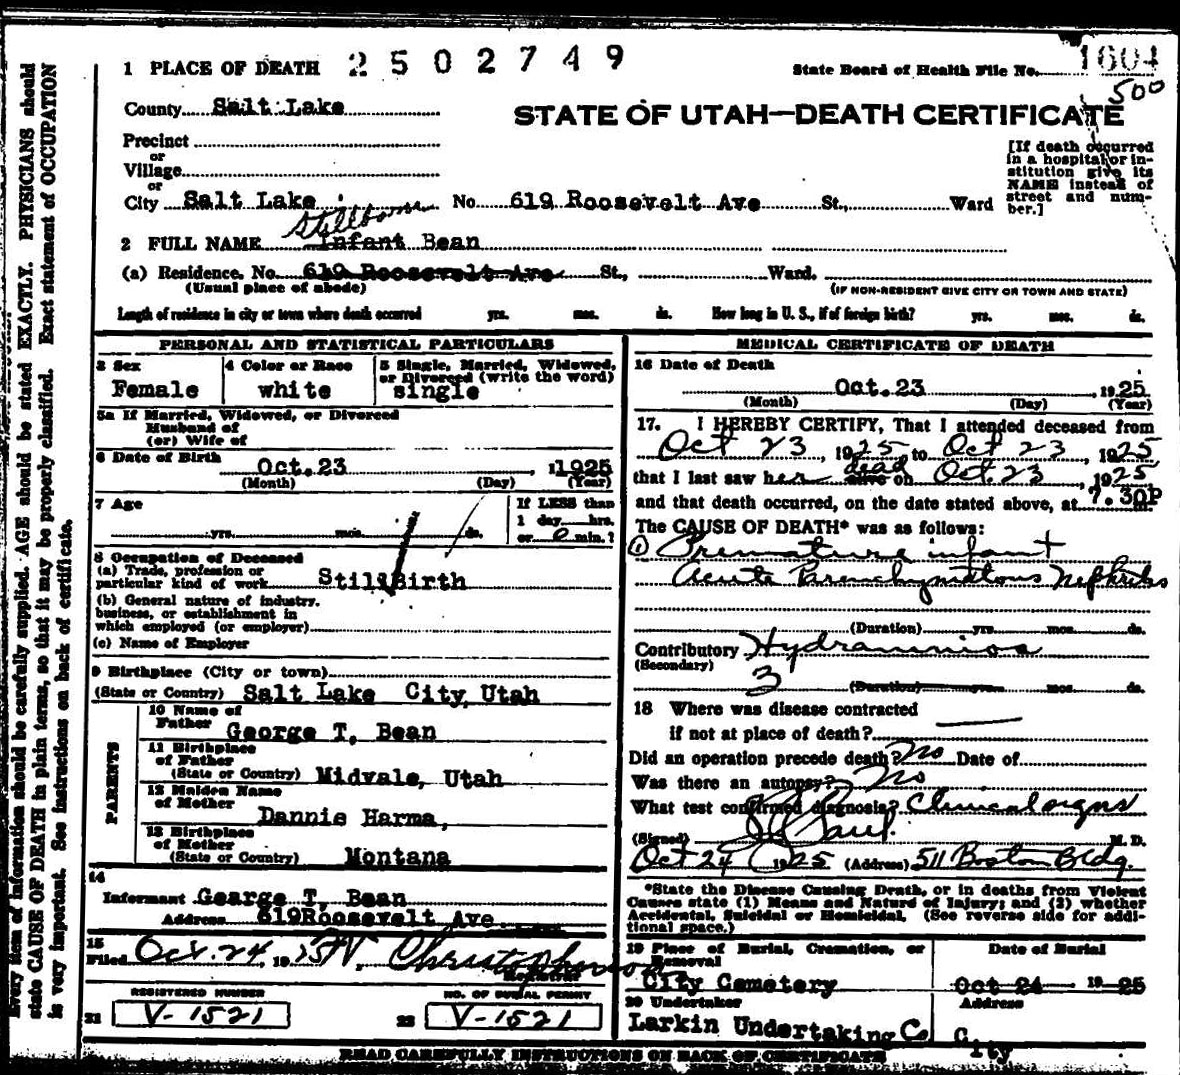 1 PLACE OF DEATH 2502749
State Board of Health File No. 1604
500
County Salt Lake
STATE OF UTAH—DEATH CERTIFICATE
Precinct
or
Village
or
City Salt Lake No. 619 Roosevelt Ave St., Ward
[If death occurred
in a hospital or in-
stitution give its
NAME instead of
street and num-
ber.]
Stillborn
2 FULL NAME Infant Bean
(a) Residence. No. 619 Roosevelt Ave St., Ward.
(Usual place of abode)
(IF NON-RESIDENT GIVE CITY OR TOWN AND STATE)
Length of residence in city or town where death occurred yrs. mos. ds. How long in U. S., if of foreign birth? yrs. mos. ds.
PERSONAL AND STATISTICAL PARTICULARS
3 Sex
Female
4 Color or Race
white
5 Single, Married, Widowed,
or Divorced (write the word)
single
5a If Married, Widowed, or Divorced
Husband of
(or) Wife of
6 Date of Birth
Oct.23 , 1 1925
(Month) (Day) (Year)
7 Age
yrs. mos. ds.
If LESS than
1 day hrs.
or 0 min.?
8 Occupation of Deceased
(a) Trade, profession or
particular kind of work StillBirth
(b) General nature of industry.
business, or establishment in
which employed (or employer)
(c) Name of Employer
9 Birthplace (City or town)
(State or Country) Salt Lake City, Utah
PARENTS
10 Name of
Father George T. Bean
11 Birthplace
of Father
(State or Country) Midvale, Utah
12 Maiden Name
of Mother
Dannie Harma,
13 Birthplace
of Mother
(State or Country) Montana
14
Informant George T. Bean
Address 619Roosevelt Ave
15
Filed Oct. 24, 19 25 Christopherson
Registrar
REGISTERED NUMBER
21 V-1521
NO. OF BURIAL PERMIT
22 V-1521
MEDICAL CERTIFICATE OF DEATH
16 Date of Death
Oct.23 , 1925
(Month) (Day) (Year)
17. I HEREBY CERTIFY, That I attended deceased from
Oct 23, 1925, to Oct 23, 1925
that I last saw her alive dead on Oct. 23, 1925
and that death occurred, on the date stated above, at 7.30P m.
The CAUSE OF DEATH* was as follows:
(1) Premature infant
Acute Parenchymatous Nephritis
(Duration) yrs. mos. ds.
Contributory Hydramnios
(Secondary)
3 (Duration) yrs. mos. ds.
18 Where was disease contracted
if not at place of death?
Did an operation precede death? No Date of
Was there an autopsy? No
What test confirmed diagnosis? Clinical signs
(Signed) M. D.
Oct 24 1925 (Address) 511 Boston Bldg.
*State the Disease Causing Death, or in deaths from Violent
Causes state (1) Means and Nature of Injury; and (2) whether
Accidental, Suicidal or Homicidal. (See reverse side for addi-
tional space.)
19 Place of Burial, Cremation, or
Removal
City Cemetery
Date of Burial
Oct 24 1925
20 Undertaker
Larkin Undertaking Co
Address
City
READ CAREFULLY INSTRUCTIONS ON BACK OF CERTIFICATE
Every item of information should be carefully supplied. AGE should be stated EXACTLY. PHYSICIANS should
state CAUSE OF DEATH in plain terms, so that it may be properly classified. Exact statement of OCCUPATION
is very important. See instructions on back of certificate.